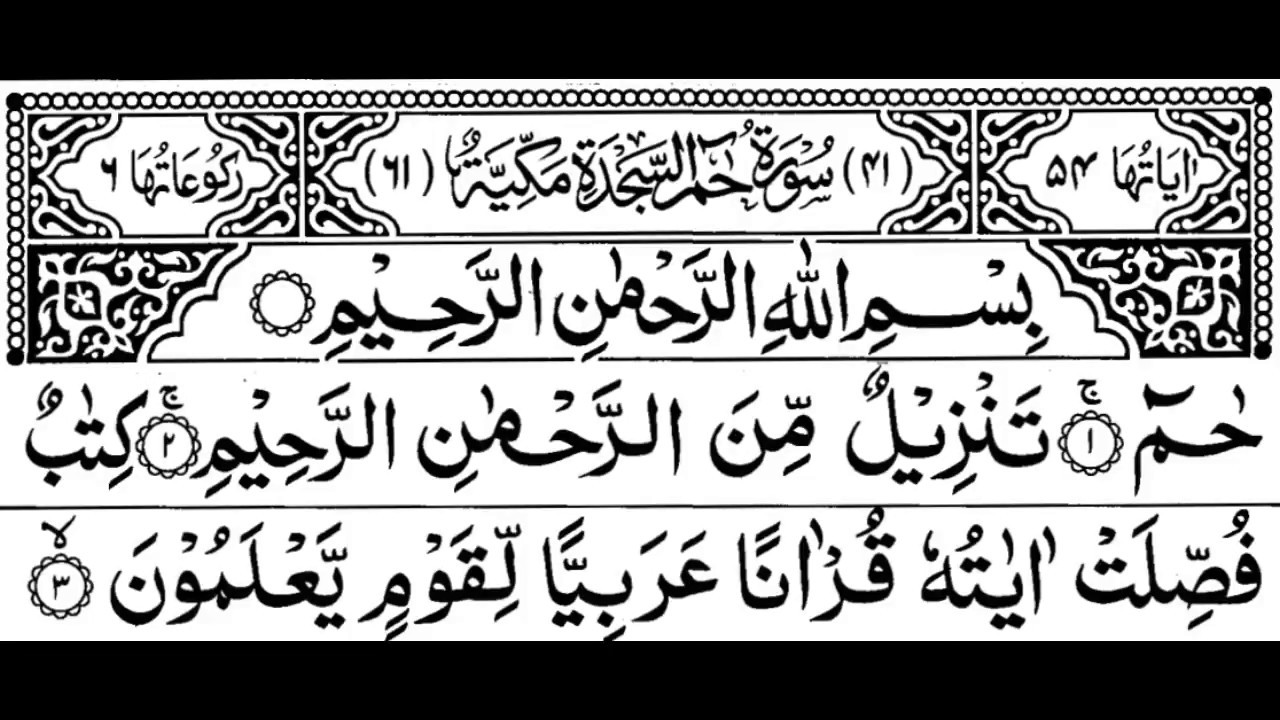 اٰيَاتُهَا ۵۴ (۴۱) سُوْرَةُ حٰمٓ السَّجْدَةِ مَكِّيَّةٌ (۶۱) رُكُوْعَاتُهَا ۶
بِسْمِ اللّٰهِ الرَّحْمٰنِ الرَّحِيْمِ
حٰمٓ ۚ‏﴿۱﴾ تَنْزِيْلٌ مِّنَ الرَّحْمٰنِ الرَّحِيْمِ ۚ‏﴿۲﴾ كِتٰبٌ
فُصِّلَتْ اٰيٰتُهٗ قُرْاٰنًا عَرَبِيًّا لِّقَوْمٍ يَّعْلَمُوْنَ ۙ‏﴿۳﴾